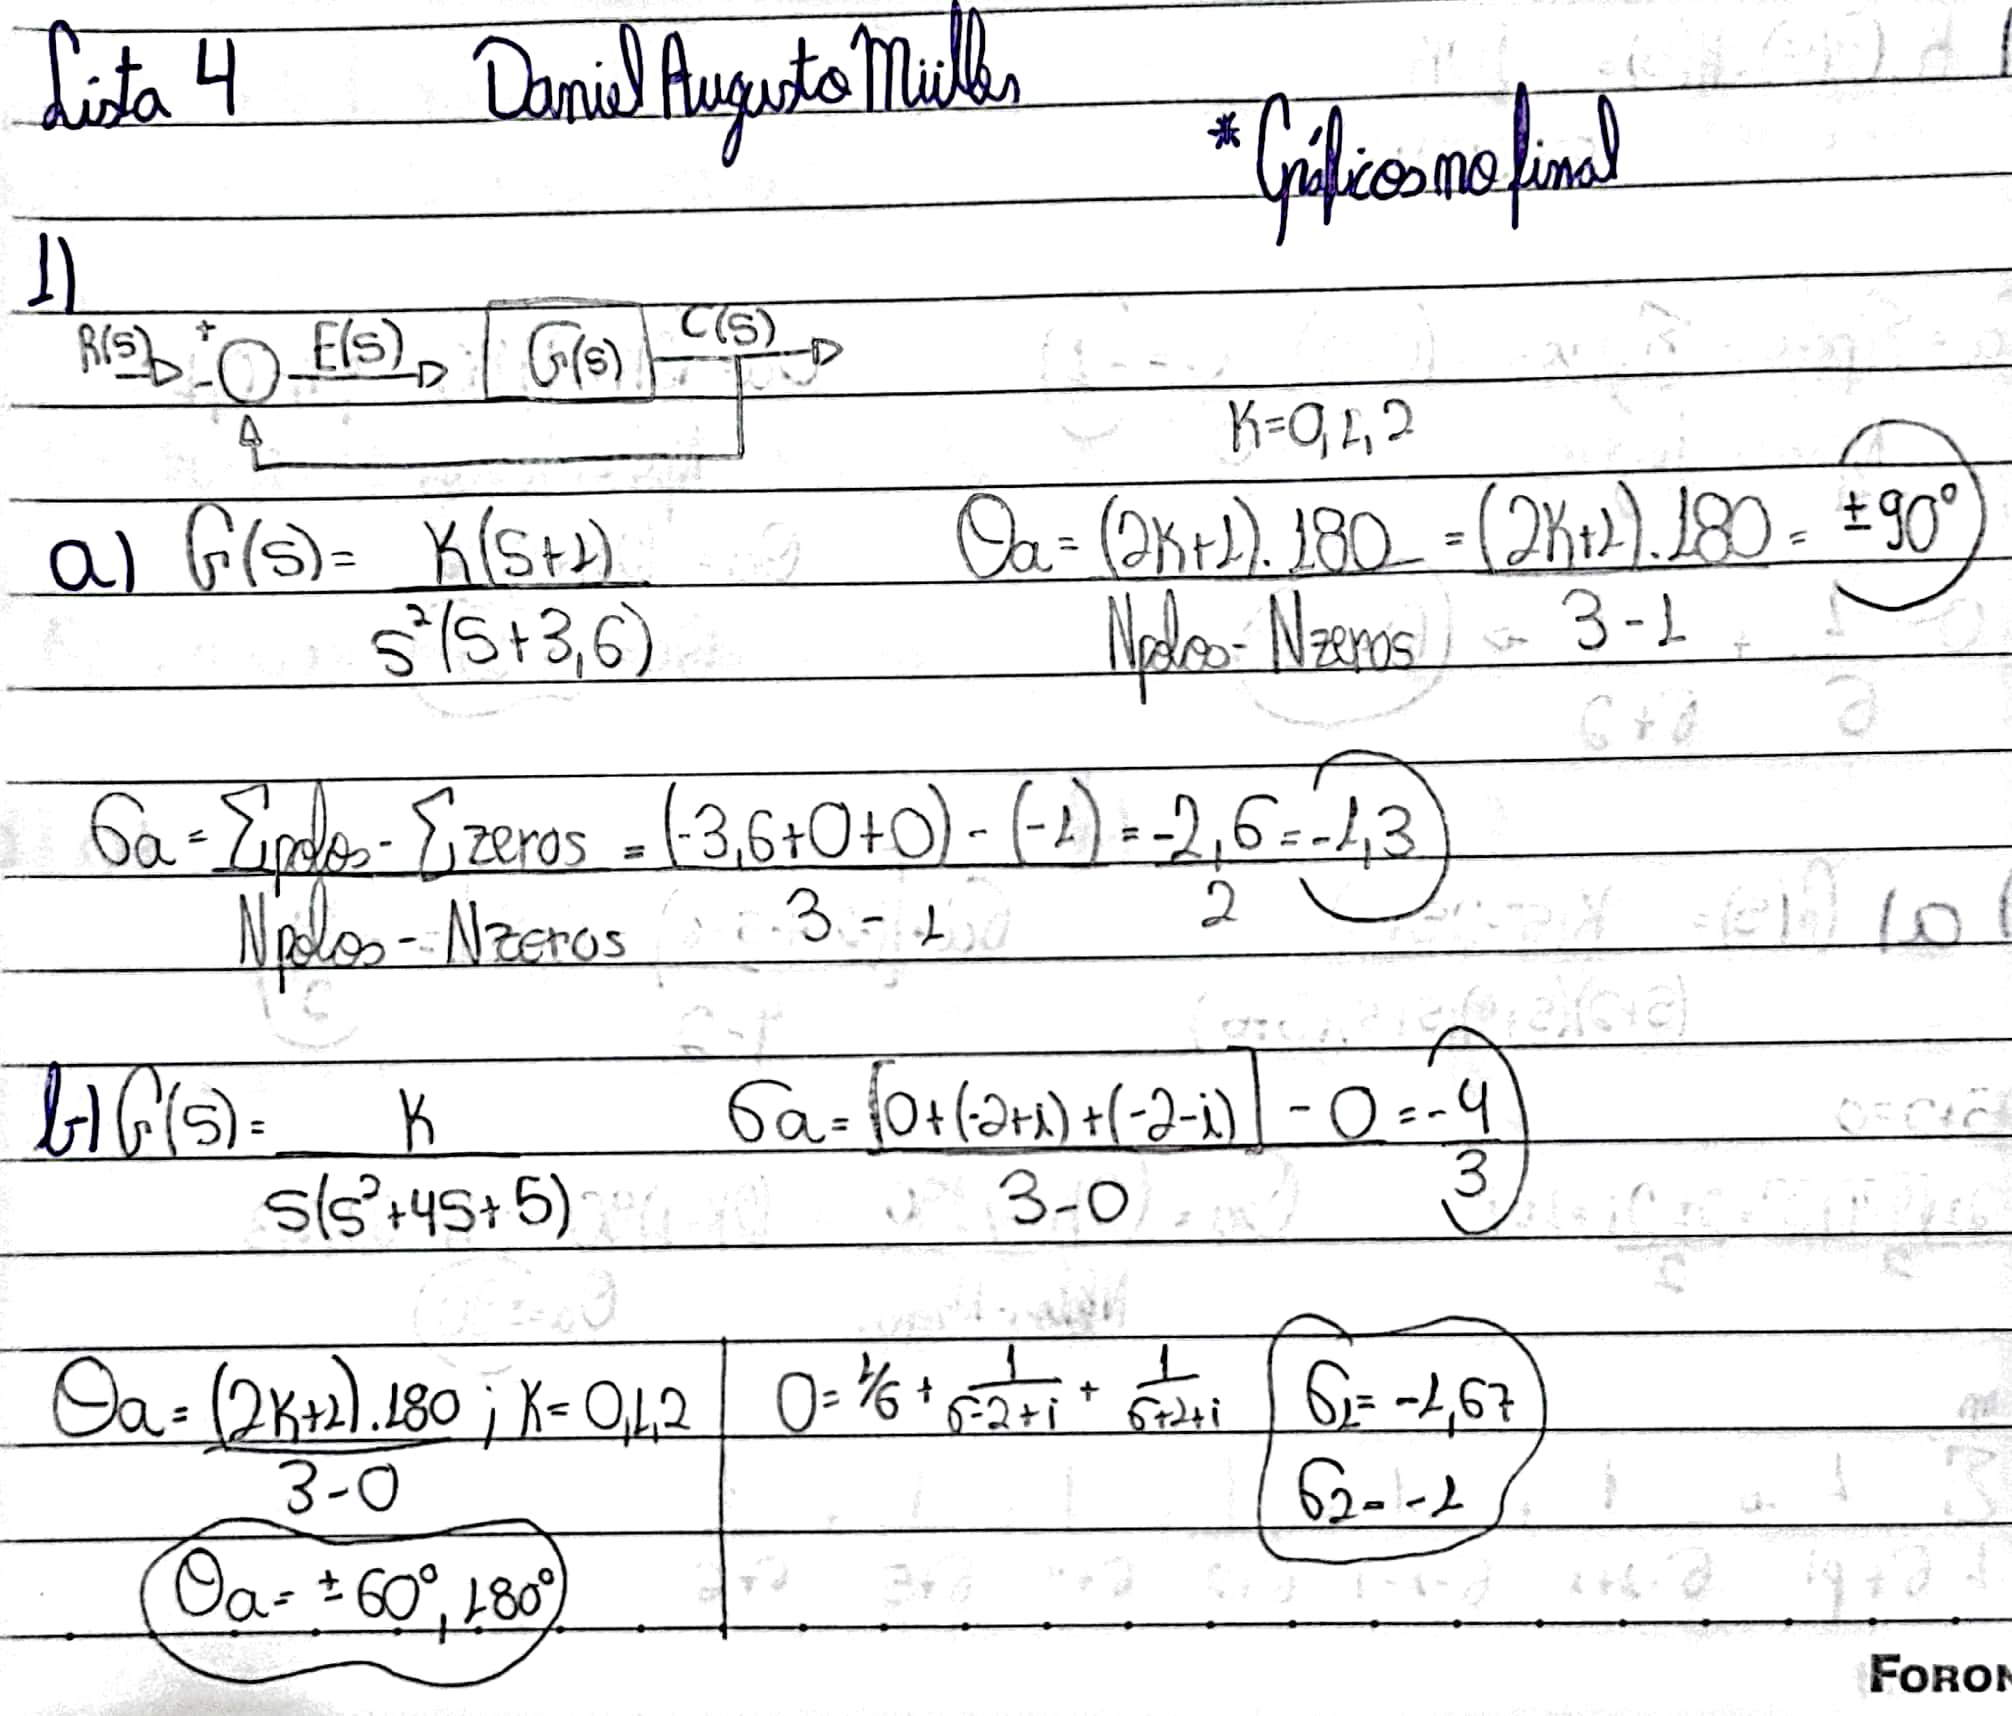 Lista 4 Daniel Augusto Müller
* Gráficos no final
1)
R(s) + - E(s) G(s) C(s)
K=0,1,2
a) G(s)= K(s+1) / s²(s+3,6) θa = (2K+1).180 / Npolos - Nzeros = (2K+1).180 / 3-1 = ±90°
σa = Σpolos - Σzeros / Npolos - Nzeros = (-3,6+0+0) - (-1) / 3 - 1 = -2,6 / 2 = -1,3
b) G(s) = K / s(s²+4s+5) σa = [0+(-2+i)+(-2-i)] - 0 / 3-0 = -4 / 3
θa = (2K+1).180 / 3-0 ; K= 0,1,2
θa = ±60°, 180°
0 = 1/σ + 1 / σ-2+i + 1 / σ+2+i
σ1= -1,67
σ2= -1
FORON